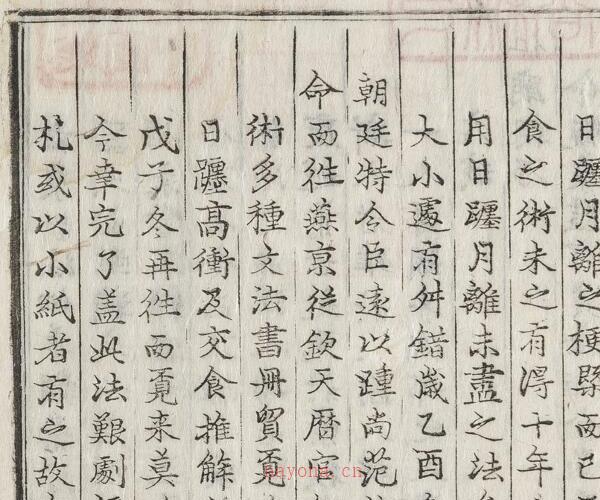 日躔月離之梗槩而已
食之術未之有得十年
用日躔月離未盡之法
大小遽有舛錯歳乙酉
朝廷特令臣遠以踵尚范
命而徃燕京従欽天暦官
術多種文法書册貿頁
日躔高衝及交食推解
戊子冬再徃而覔来莫
今幸完了盖此法艱劇
札或以小紙者有之故
bayona.cn